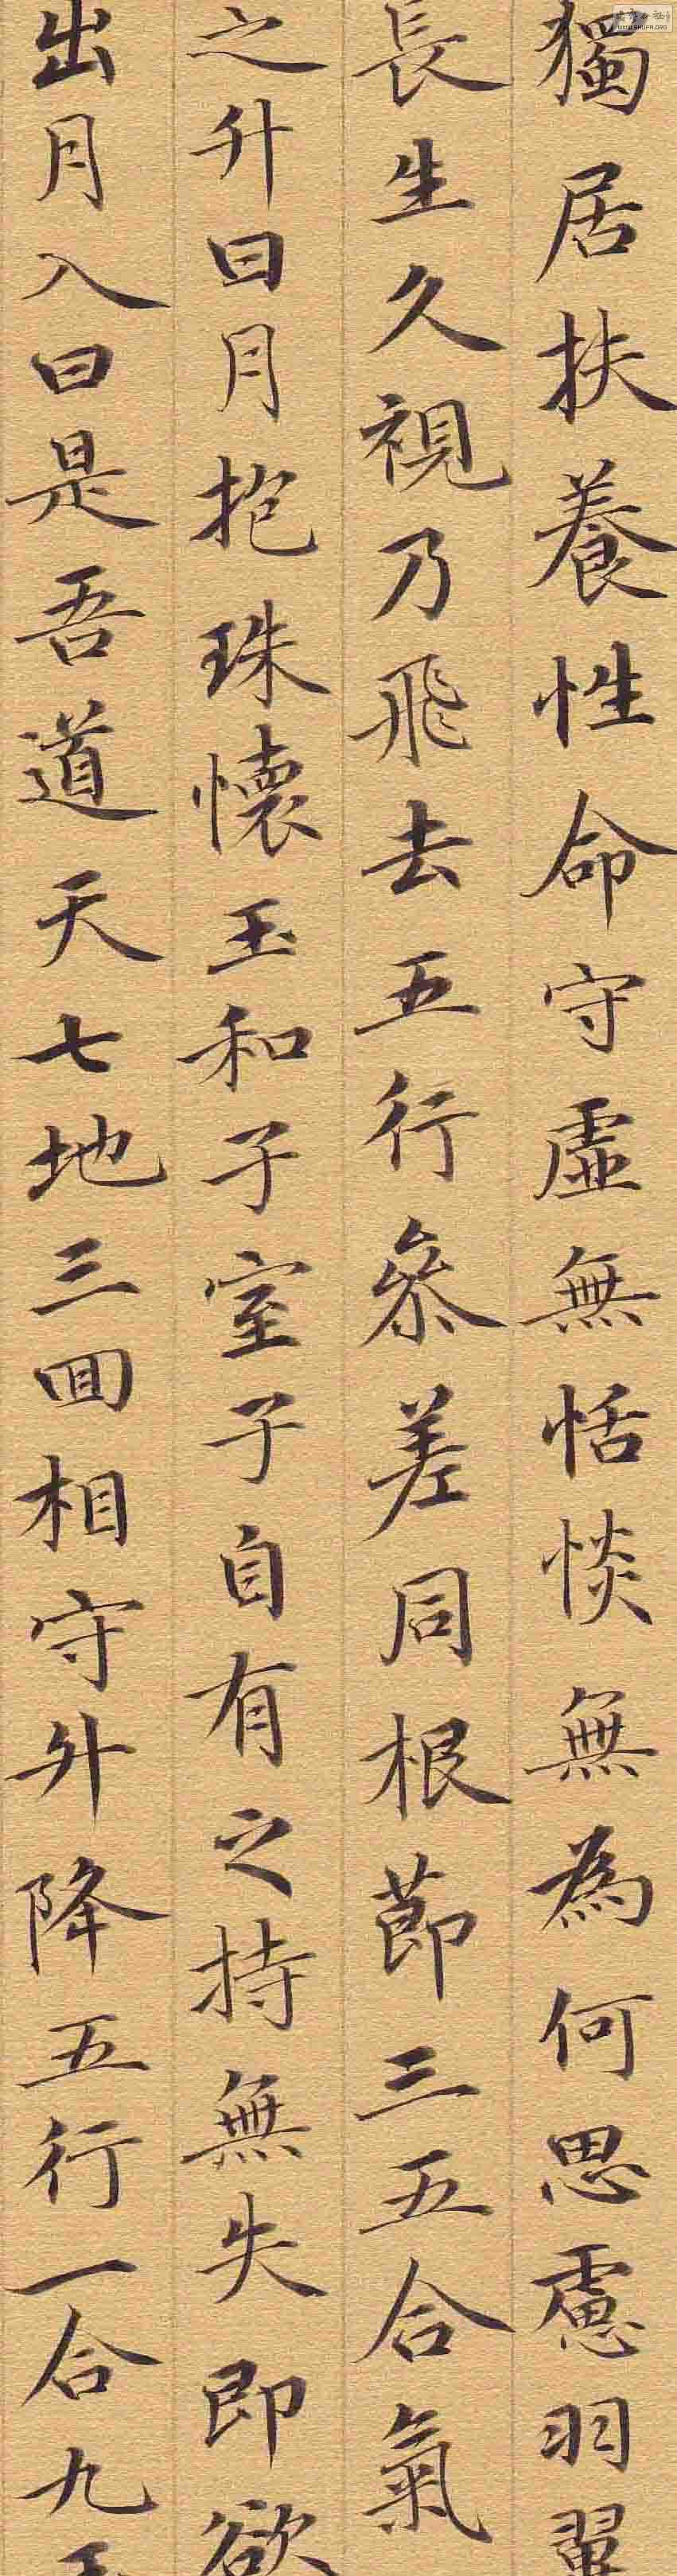 獨居扶養性命守虛無恬惔無為何思慮羽翼
長生久視乃飛去五行叅差同根莭三五合氣
之升日月抱珠懷玉和子室子自有之持無失即欲
出月入日是吾道天七地三回相守升降五行一合九玉